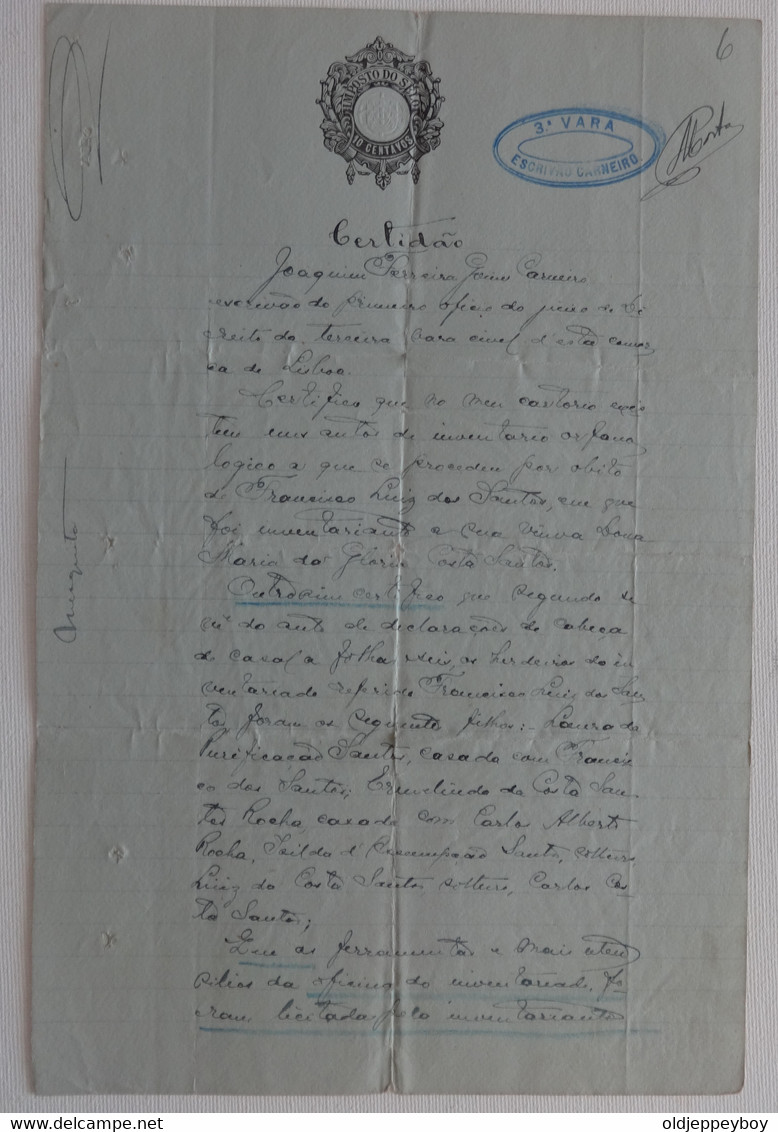 6
IMPOSTO DO SELO
10 CENTAVOS
3.ª VARA
ESCRIVÃO CARNEIRO
Certidão
Joaquim Ferreira Gomes Carneiro
escrivão do primeiro oficio do juizo de Di
reito da terceira vara civel d'esta comar
ca de Lisboa.
Certifico que no meu cartorio exis
tem uns autos de inventario orfano
logico a que se procedeu por obito
de Francisco Luiz dos Santos, em que
foi inventariante a sua viuva Dona
Maria da Gloria Costa Santos.
Outrosim certifico que segundo se
vê do auto de declarações de cabeça
de casal a folhas seis, os herdeiros do in
ventariado referido Francisco Luiz dos San
tos foram os seguintes filhos:- Laura da
Purificação Santos, casada com Francis
co dos Santos; Ermelinda da Costa San
tos Rocha, casada com Carlos Alberto
Rocha, Isilda d'Encarnação Santos, solteira
Luiz da Costa Santos, solteiro, Carlos Cos
ta Santos;
Que as ferramentas e mais uten
silios da oficina do inventariado, fo-
ram licitadas pela inventariante
delcampe.net
oldjeppeyboy